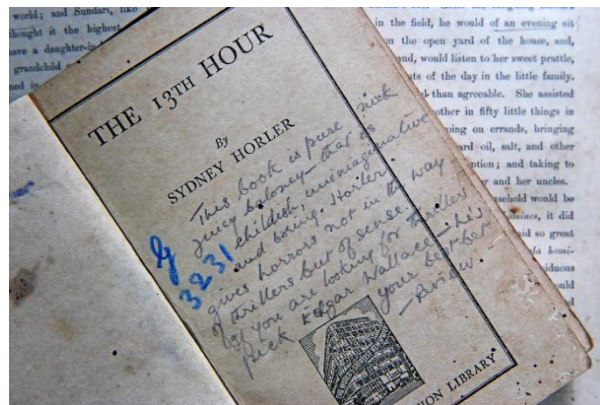 world; and Sundari, like
thought it the highest
have a daughter-in
grandchild
med in
in the field, he would of an evening sit
on the open yard of the house, and,
would listen to her sweet prattle,
of the day in the little family.
than agreeable. She assisted
other in fifty little things in
on errands, bringing
oil, salt, and other
; and taking to
or and her uncles.
would be
, it did
so great
la homi-
would
THE 13TH HOUR
By
SYDNEY HORLER
This book is pure, sick
juicy baloney—that is
childish, unimaginative
and boring. Horler
gives horrors not in the way
of thrillers but of sense.
If you are looking for thrillers
pick Edgar Wallace—he's
your best bet
—Review
G
3231
LIBRARY